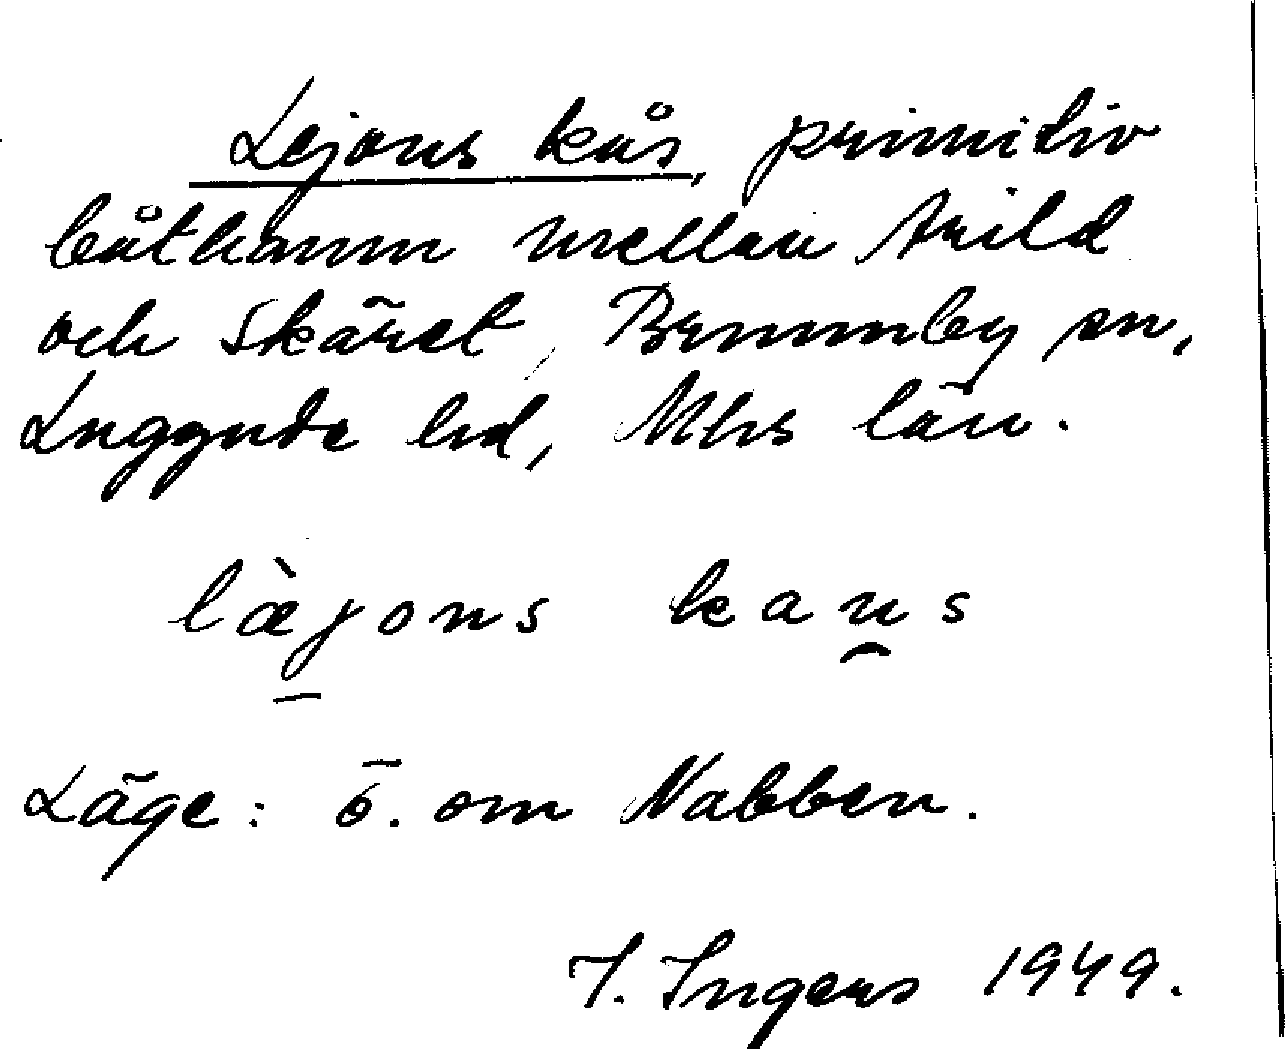 Lejons kås, primitiv
båthamn mellan Arild
och Skäret, Brunnby sn,
Luggude hd, Mhs län.
lὰjons kaus
Läge: ö. om Nabben.
I. Ingers 1949.